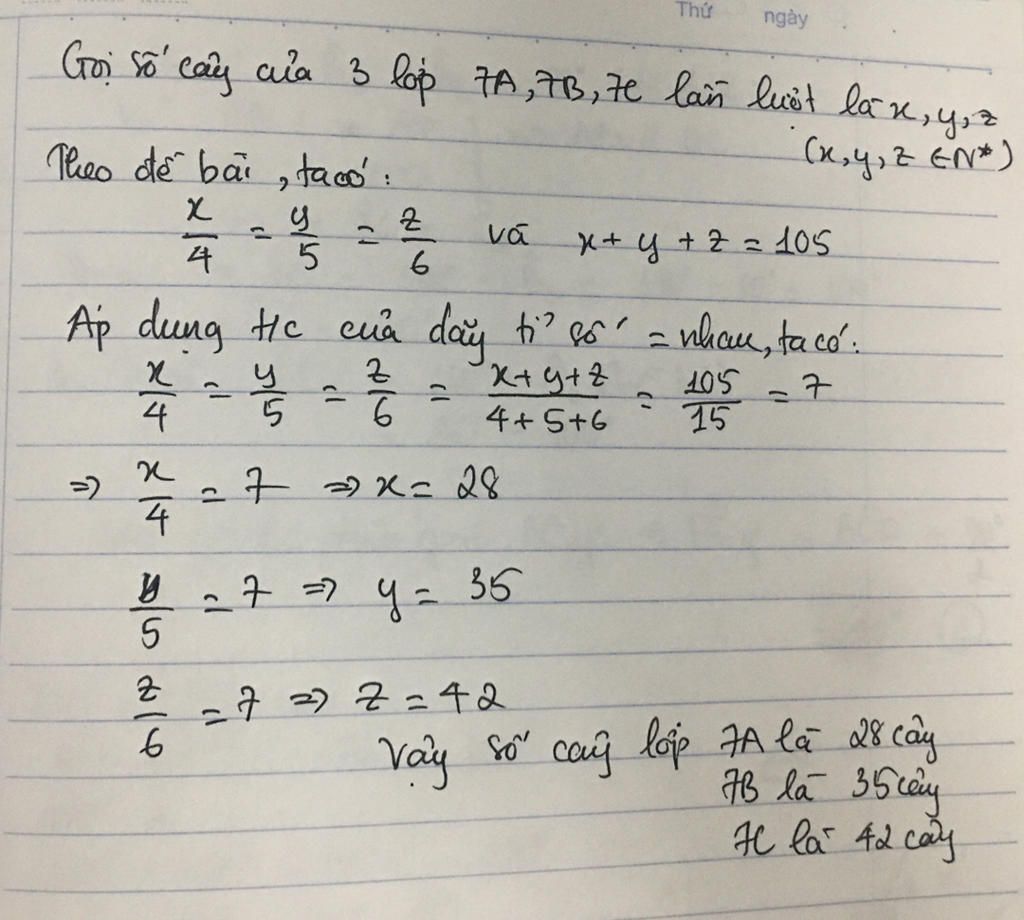 Thứ ngày
Gọi số cây của 3 lớp 7A, 7B, 7C lần lượt là x, y, z
(x, y, z ∈ N*)
Theo đề bài, ta có:
x/4 = y/5 = z/6 và x + y + z = 105
Áp dụng t/c của dãy tỉ số = nhau, ta có:
x/4 = y/5 = z/6 = x+y+z/4+5+6 = 105/15 = 7
⇒ x/4 = 7 ⇒ x = 28
y/5 = 7 ⇒ y = 35
z/6 = 7 ⇒ z = 42
Vậy số cây lớp 7A là 28 cây
7B là 35 cây
7C là 42 cây